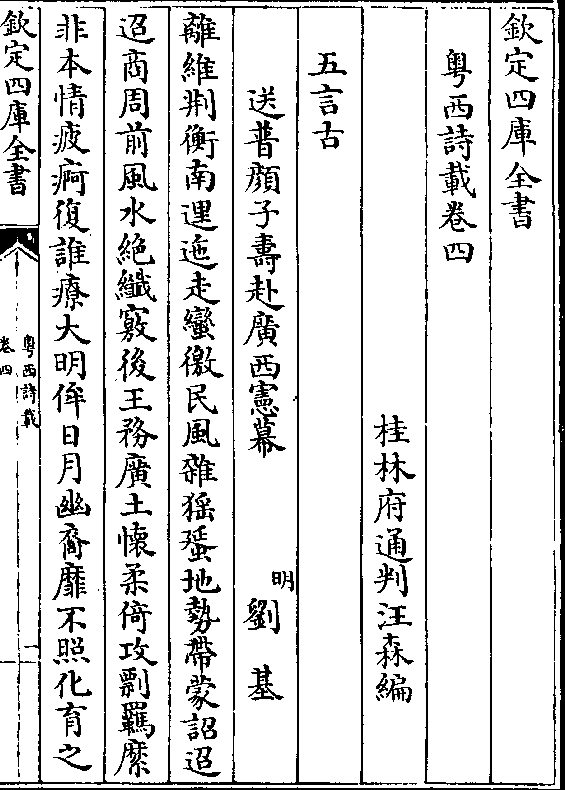 欽定四庫全書
粤西詩載卷四
桂林府通判汪森編
五言古
送普顔子壽赴廣西憲幕
明劉基
離維荆衡南邐迤走蠻徼民風雜猺蜑地勢帶蒙詔迢
迢商周前風水絶纎竅後王務廣土懷柔倚攻剽羈縻
非本情疲痾復誰療大明侔日月幽裔靡不照化育之
欽定四庫全書
粤西詩載
卷四
一